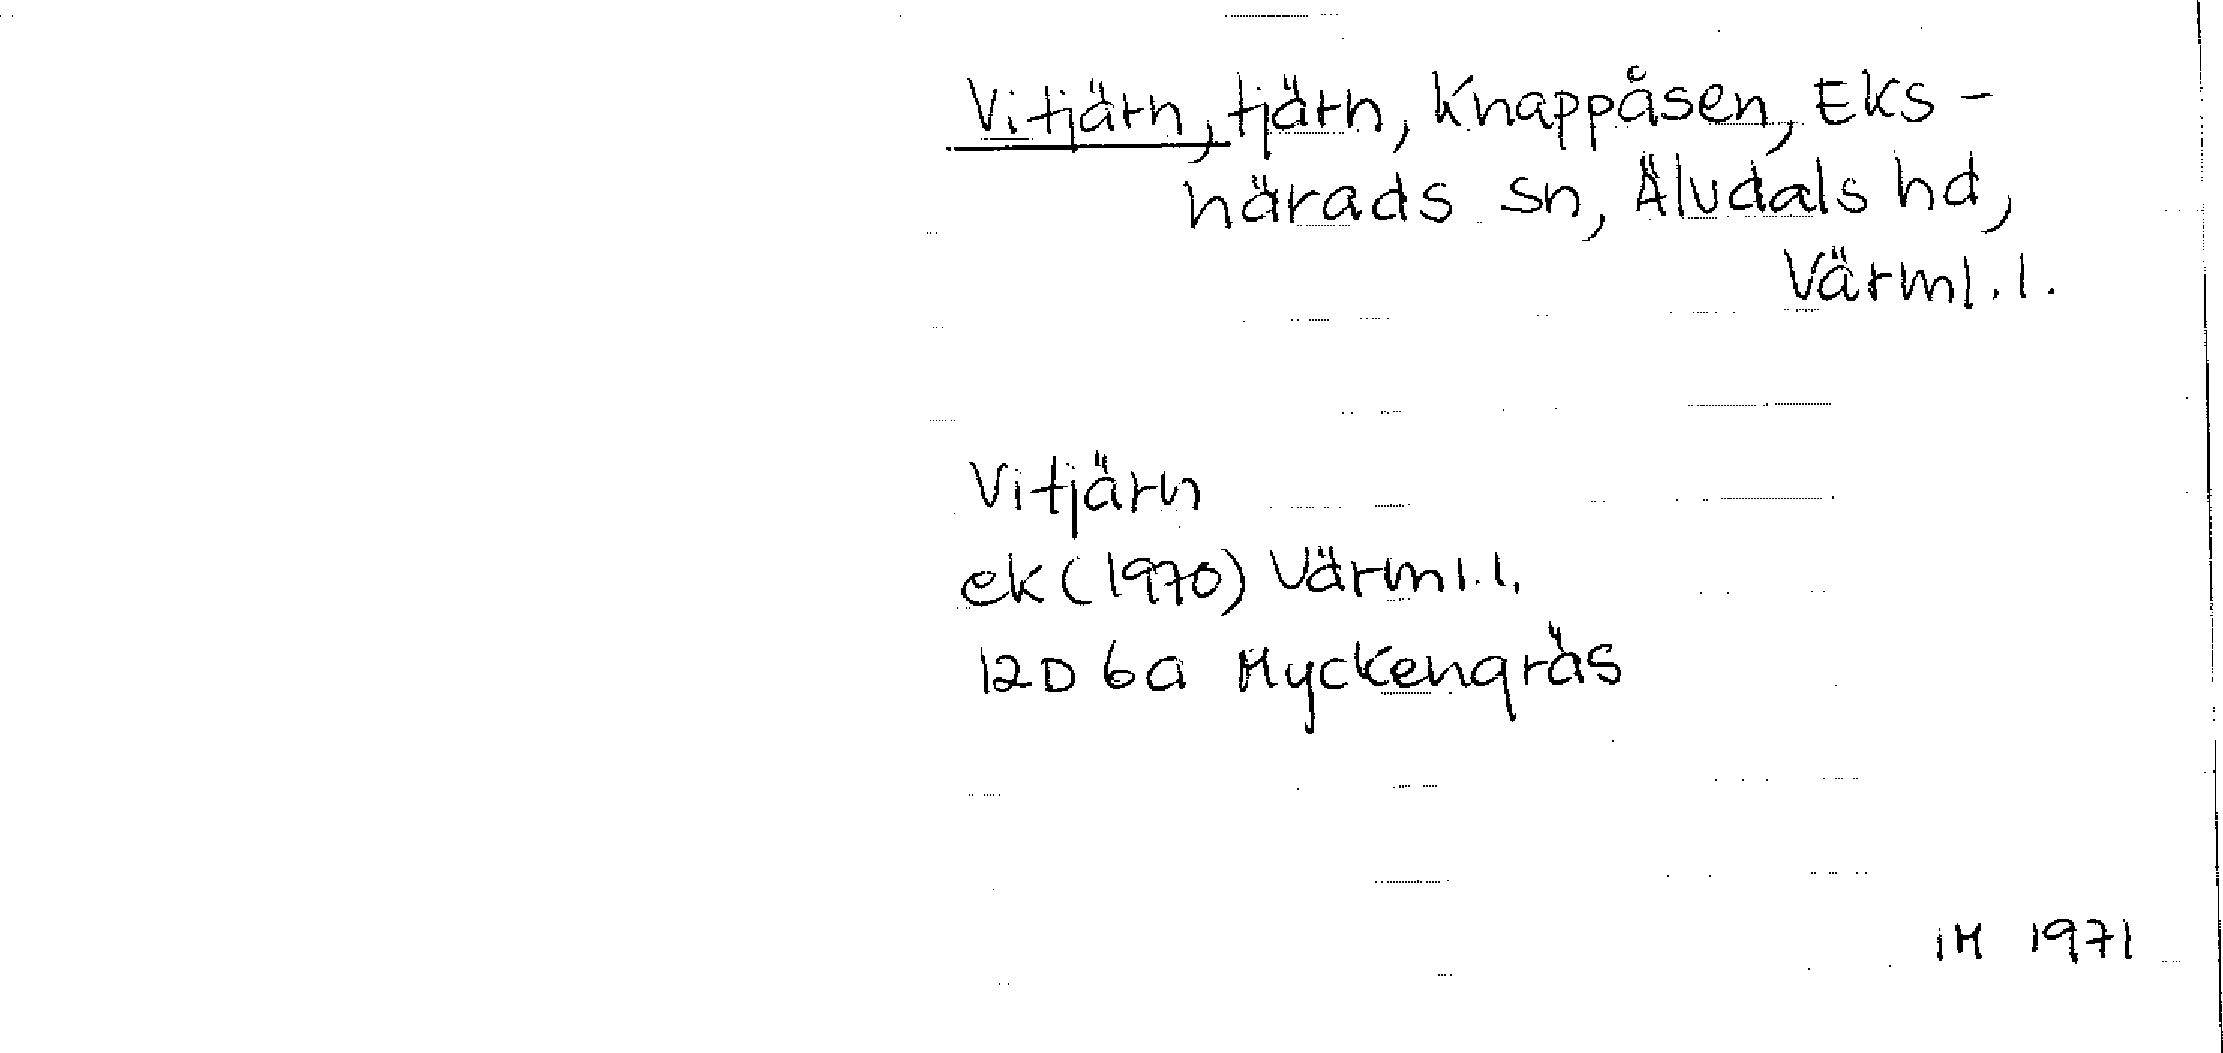 Vitjärn, tjärn, Knappåsen, Eks-
härads sn, Älvdals hd,
Värml. l.
Vitjärn
ek (1970) Värml. l.
12D 6a Myckengräs
iM 1971